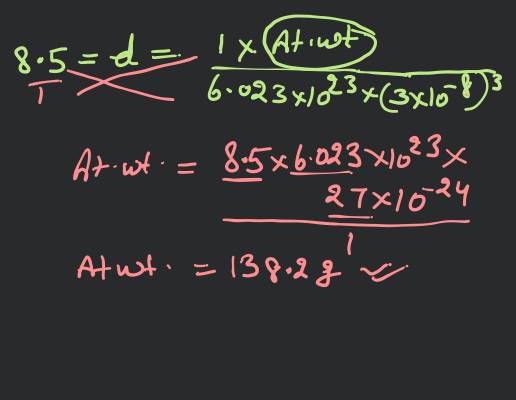 8.5 = d = 1 × At.wt
1 6.023×10²³×(3×10⁻⁸)³
At.wt. = 8.5×6.023×10²³×
27×10⁻²⁴
1
At wt. = 138.2 g